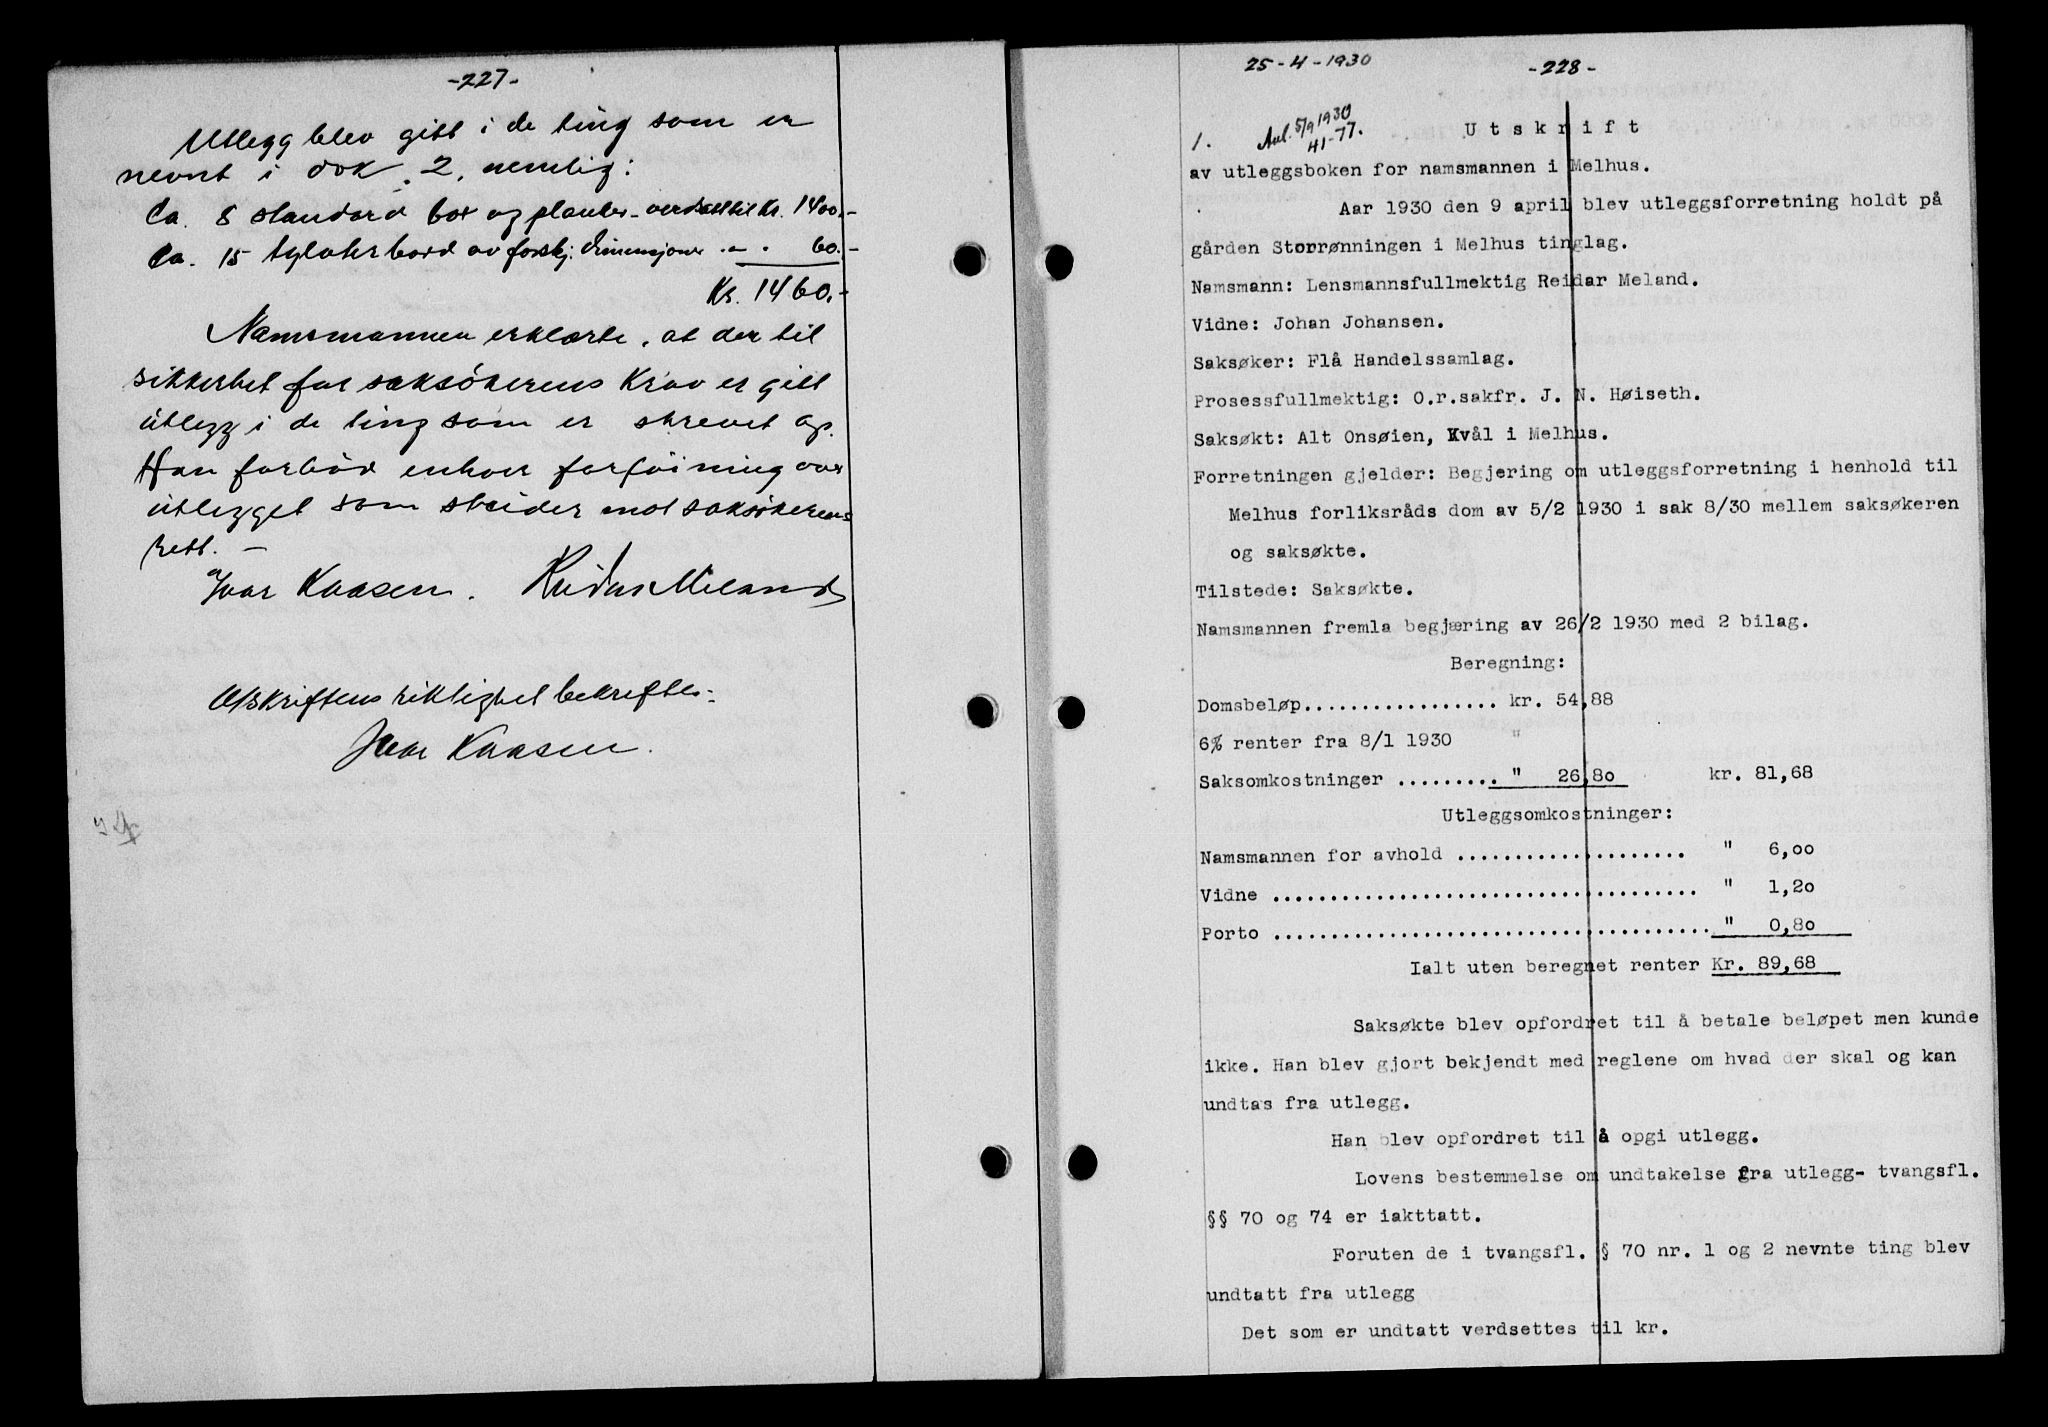 -227-
Utlegg blev gitt i de ting som er
nevnt i dok. 2, nemlig:
Ca. 8 standard box og planker - verdsatt til Kr. 1400,-
Ca. 15 tylvter bord av forskj. dimensjoner - " - . 60.-
Kr. 1460,-
Namsmannen erklærte, at der til
sikkerhet for saksökerens Krav er gitt
utlegg i de ting som er skrevet op.
Han forböd enhver forföining over
utlegget som strider mot saksökerens
rett. -
Ivar Kaasen. Reidar Meland
Avskriftens riktighet bekreftes:
Ivar Kaasen.
25-4-1930
-228-
1. Avl. 5/9 1930
41-77.
Utskrift
av utleggsboken for namsmannen i Melhus.
Aar 1930 den 9 april blev utleggsforretning holdt på
gården Storrønningen i Melhus tinglag.
Namsmann: Lensmannsfullmektig Reidar Meland.
Vidne: Johan Johansen.
Saksøker: Flå Handelssamlag.
Prosessfullmektig: O.r.sakfr. J. N. Høiseth.
Saksøkt: Alt Onsøien, Kvål i Melhus.
Forretningen gjelder: Begjering om utleggsforretning i henhold til
Melhus forliksråds dom av 5/2 1930 i sak 8/30 mellem saksøkeren
og saksøkte.
Tilstede: Saksøkte.
Namsmannen fremla begjæring av 26/2 1930 med 2 bilag.
Beregning:
Domsbeløp.................. kr. 54,88
6% renter fra 8/1 1930 "
Saksomkostninger ......... " 26,80 kr. 81,68
Utleggsomkostninger:
Namsmannen for avhold ..................... " 6,00
Vidne ....................................... " 1,20
Porto ........................................ " 0,80
Ialt uten beregnet renter Kr. 89,68
Saksøkte blev opfordret til å betale beløpet men kunde
ikke. Han blev gjort bekjendt med reglene om hvad der skal og kan
undtas fra utlegg.
Han blev opfordret til å opgi utlegg.
Lovens bestemmelse om undtakelse fra utlegg- tvangsfl.
§§ 70 og 74 er iakttatt.
Foruten de i tvangsfl. § 70 nr. 1 og 2 nevnte ting blev
undtatt fra utlegg
Det som er undtatt verdsettes til kr.